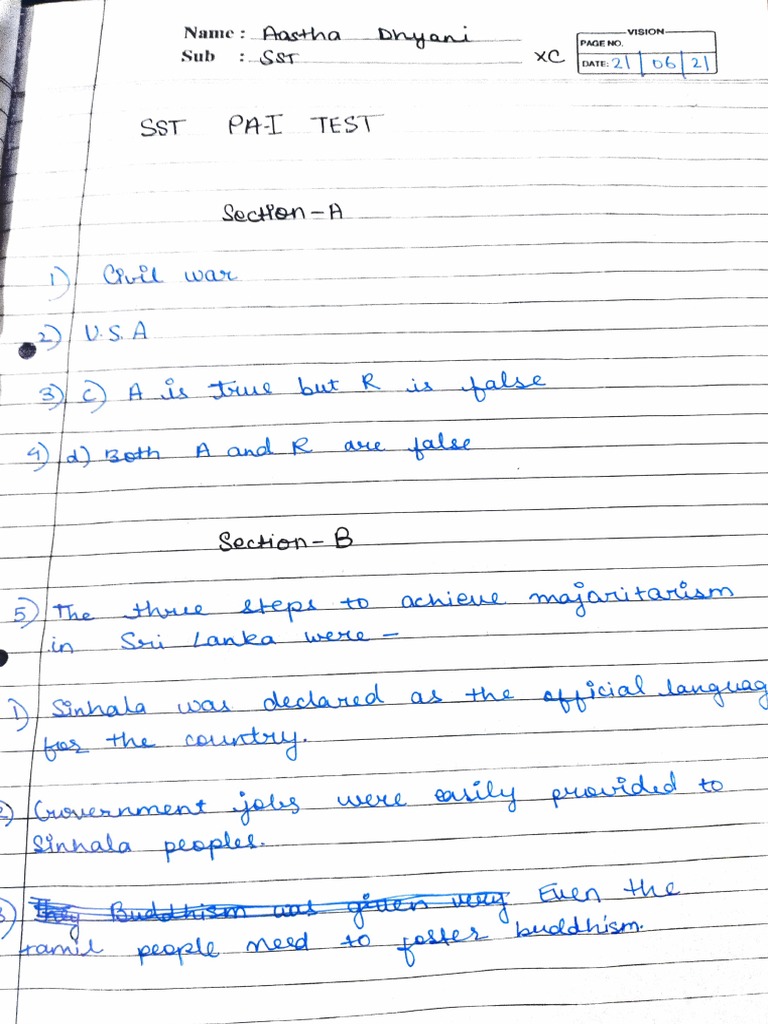 VISION
Name : Aastha Dhyani
PAGE NO.
Sub : SST
XC
DATE: 21/06/21
SST PA-I TEST
Section-A
1) Civil war
2) U.S.A
3) c) A is true but R is false
4) d) Both A and R are false
Section-B
5) The three steps to achieve majaritarism
in Sri Lanka were -
1) Sinhala was declared as the official languag
for the country.
2) Government jobs were easily provided to
Sinhala peoples.
3) They Buddhism was given very Even the
tamil people need to foster buddhism.